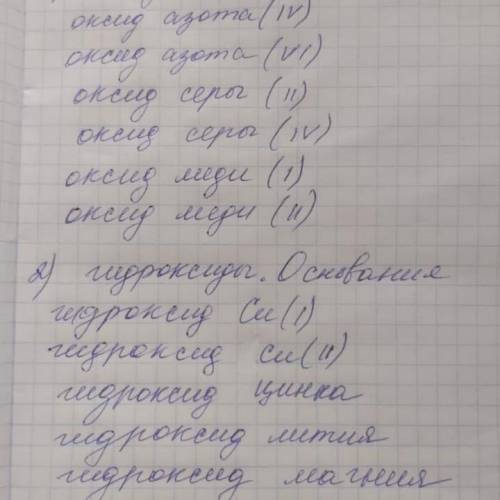 оксид азота (IV)
оксид азота (VI)
оксид серы (II)
оксид серы (IV)
оксид меди (I)
оксид меди (II)
2) гидроксиды. Основания
гидроксид Cu (I)
гидроксид Cu (II)
гидроксид цинка
гидроксид лития
гидроксид магния